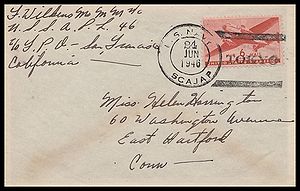 F. Wilkins Mo M M 2/c
U.S.S. A.P.L. 46
c/o F.P.O – San Francisco
California
U.S. NAVY
24
JUN
1946
SCAJAP
TOKYO
Miss Helen Harrington
60 Washington Avenue
East Hartford
Conn